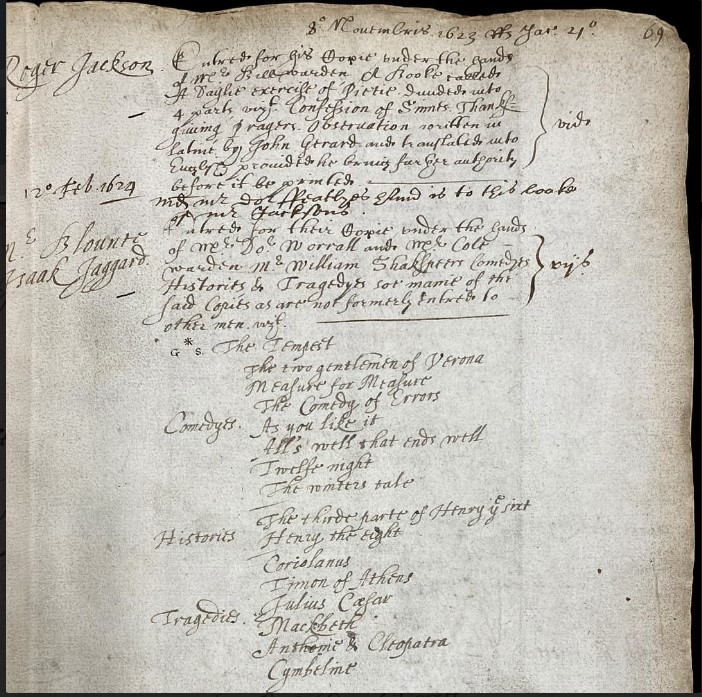 8º Novembris. 1623 Rs Jac. 21º 69
Roger Jackson Entred for his Copie under the hands
of Mr Bill warden A Booke called
A Daylie exercise of Pietie devided into
4 parts vizt. Confession of Sinnes. Thankf-
giving Prayers. Observation written in
latine by John Gerard and translated into
English provided he bring further authority vjd
before it be printed
12º Feb. 1624 hand is to this booke
of mr Jacksons.
Mr Blounte Entred for their Copie under the hands
Isaak Jaggard of Mr Dor. Worrall and Mr Cole
warden Mr William Shakspeers Comedyes
Histories & Tragedyes soe manie of the vijs
said Copies as are not formerly Entred to
other men. vizt.
G * S. The Tempest
The two gentlemen of Verona
Measure for Measure
The Comedy of Errors
Comedyes. As you like it
All's well that ends well
Twelfe night
The winters tale
The thirde parte of Henry ye sixt
Histories Henry the eight
Coriolanus
Timon of Athens
Julius Cæsar
Tragedies. Mackbeth
Anthonie & Cleopatra
Cymbeline